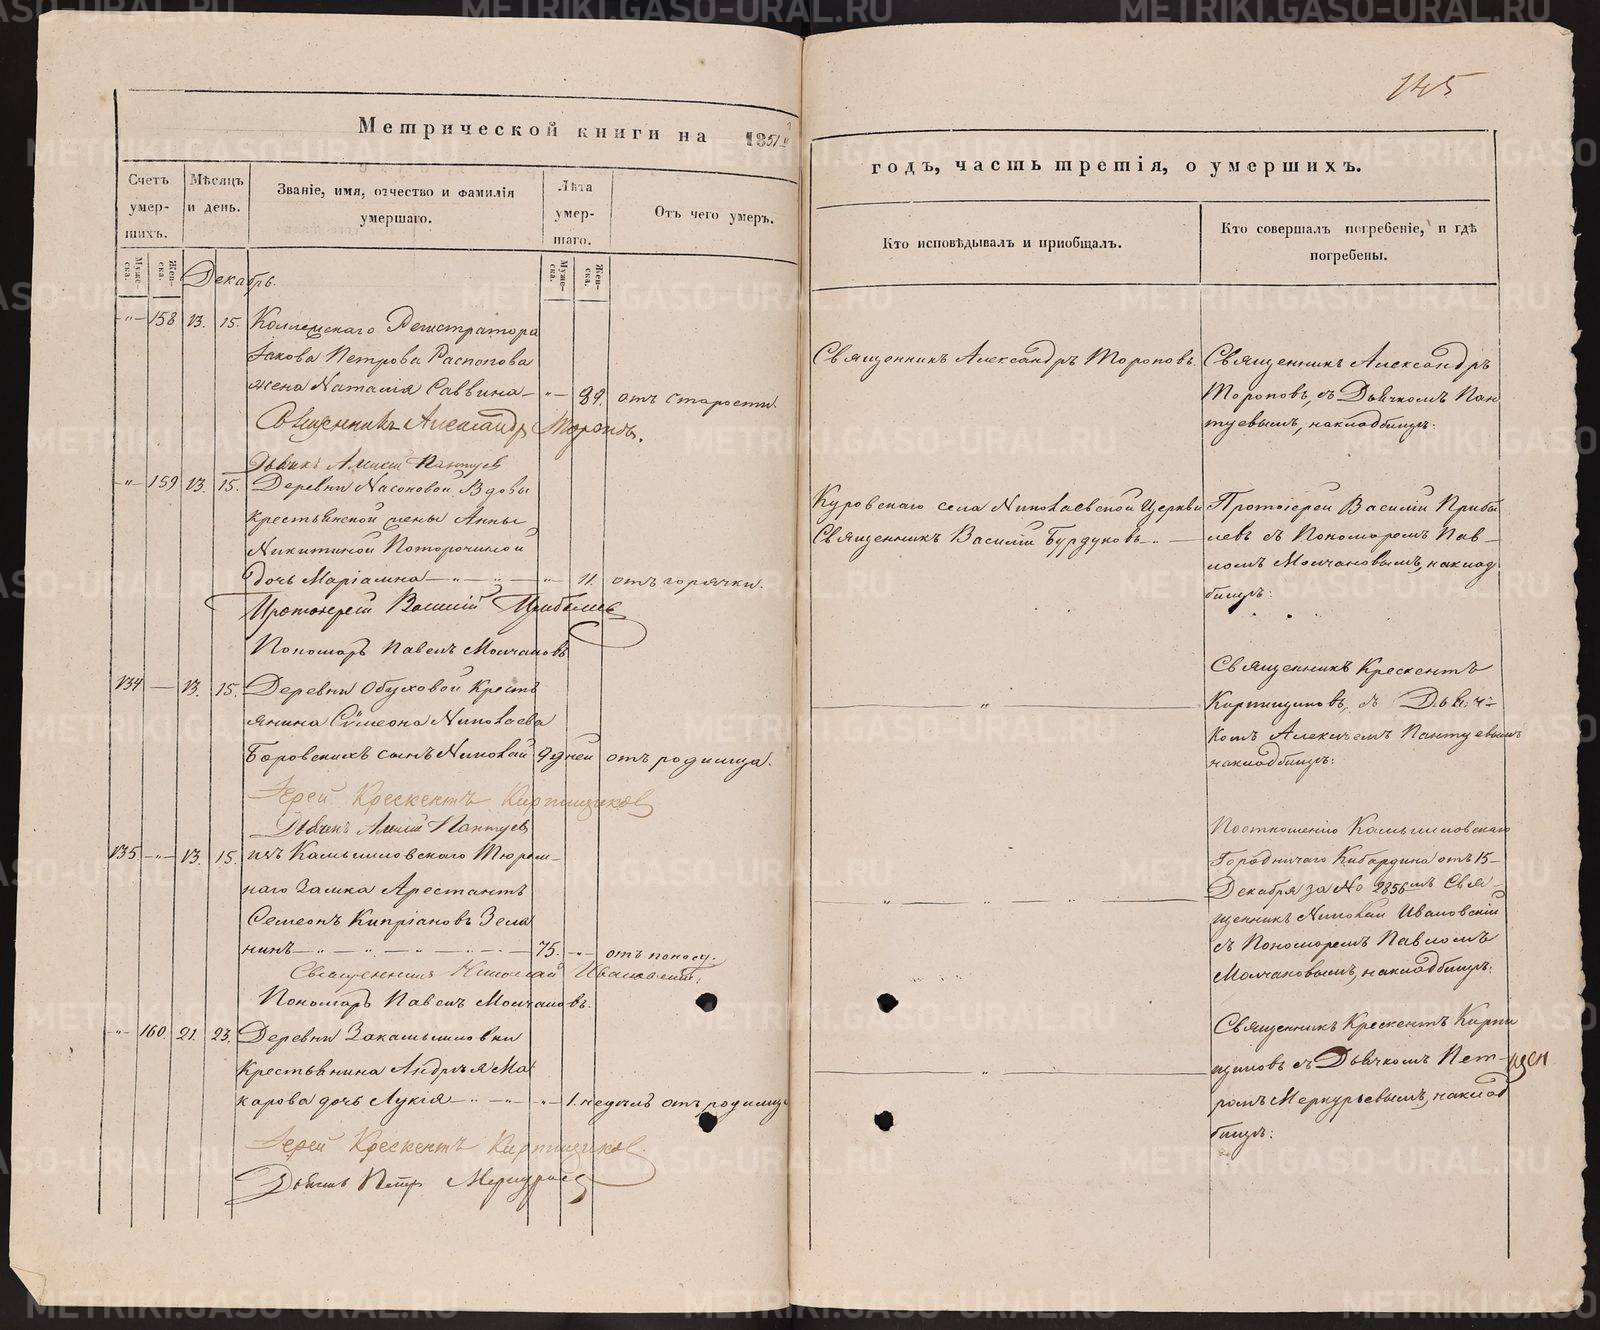 145
Метрической книги на 1851й
годъ, часть третія, о умершихъ.
Счетъ умер-
шихъ.
Мѣсяцъ
и день.
Званіе, имя, отчество и фамилія
умершаго.
Лѣта
умер-
шаго.
Отъ чего умеръ.
Кто исповѣдывалъ и пріобщалъ.
Кто совершалъ погребеніе, и гдѣ
погребены.
Муже-
ска.
Жен-
ска.
Муже-
ска.
Жен-
ска.
Декабрь.
-"- 158 13. 15. Коллежскаго Регистратора
Іакова Петрова Распопова
жена Наталія Саввина - " - 89. отъ старости.
Священникъ Александръ Тороповъ.
Дьячекъ Алексѣй Пантуев
Священникъ Александръ Тороповъ.
Священникъ Александръ
Тороповъ, съ Дьячкомъ Пан
туевымъ, накладбищѣ.
-"- 159 13. 15. Деревни Насоновой Вдовы
крестьянской жены Анны
Никитиной Поторочиной
дочь Маріамна - " - " - " - 11. отъ горячки.
Протоіерей Василій Прибылев
Пономарь Павелъ Молчановъ
Куровскаго села Николаевской Церкви
Священникъ Василій Бурдуковъ - " -
Протоіерей Василій Прибы
левъ съ Пономаремъ Пав-
ломъ Молчановымъ, наклад
бищѣ:
134 - 13. 15. Деревни Обуховой Кресть
янина Сѵмеона Николаева
Боровскихъ сынъ Николай 9 дней отъ родимца.
Іерей Крескентъ Кирпищиков
Дьячекъ Алексѣй Пантуев
"
Священникъ Крескентъ
Кирпищиковъ, съ Дьяч-
комъ Алексѣемъ Пантуевымъ
накладбищѣ:
135. -"- 13. 15. изъ Камышловскаго Тюрем-
наго Замка Арестантъ
Семеонъ Кипріановъ Зеля
нинъ - " - " - " - " - 75. -"- отъ поносу.
Священникъ Николай Ивановскій.
Пономарь Павелъ Молчановъ.
" " " "
Поотношенію Камышловскаго
Городничаго Кибардина отъ 15-
Декабря за No 2856мъ Свя-
щенникъ Николай Ивановскій
съ Пономаремъ Павломъ
Молчановымъ, накладбищѣ:
-"- 160. 21. 23. Деревни Закамышловки
Крестьянина Андрѣя Ма
карова дочь Лукія - " - " - " - 1. недѣль отъ родимц
Іерей Крескентъ Кирпищиков.
Дьячекъ Петръ Меркурьев
"
Священникъ Крескентъ Кирпи
щиковъ съ Дьячкомъ Пет-
ромъ Меркурьевымъ, наклад
бищѣ:
METRIKI.GASO-URAL.RU